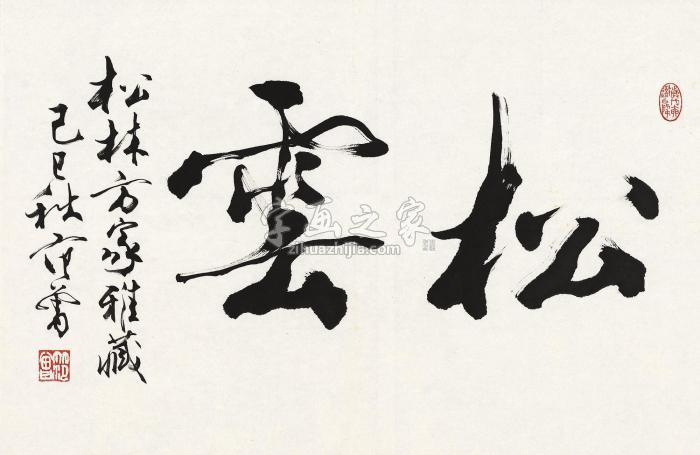 松雲
松林方家雅藏
己巳秋范曾
字画之家
zihuazhijia.com
范曾